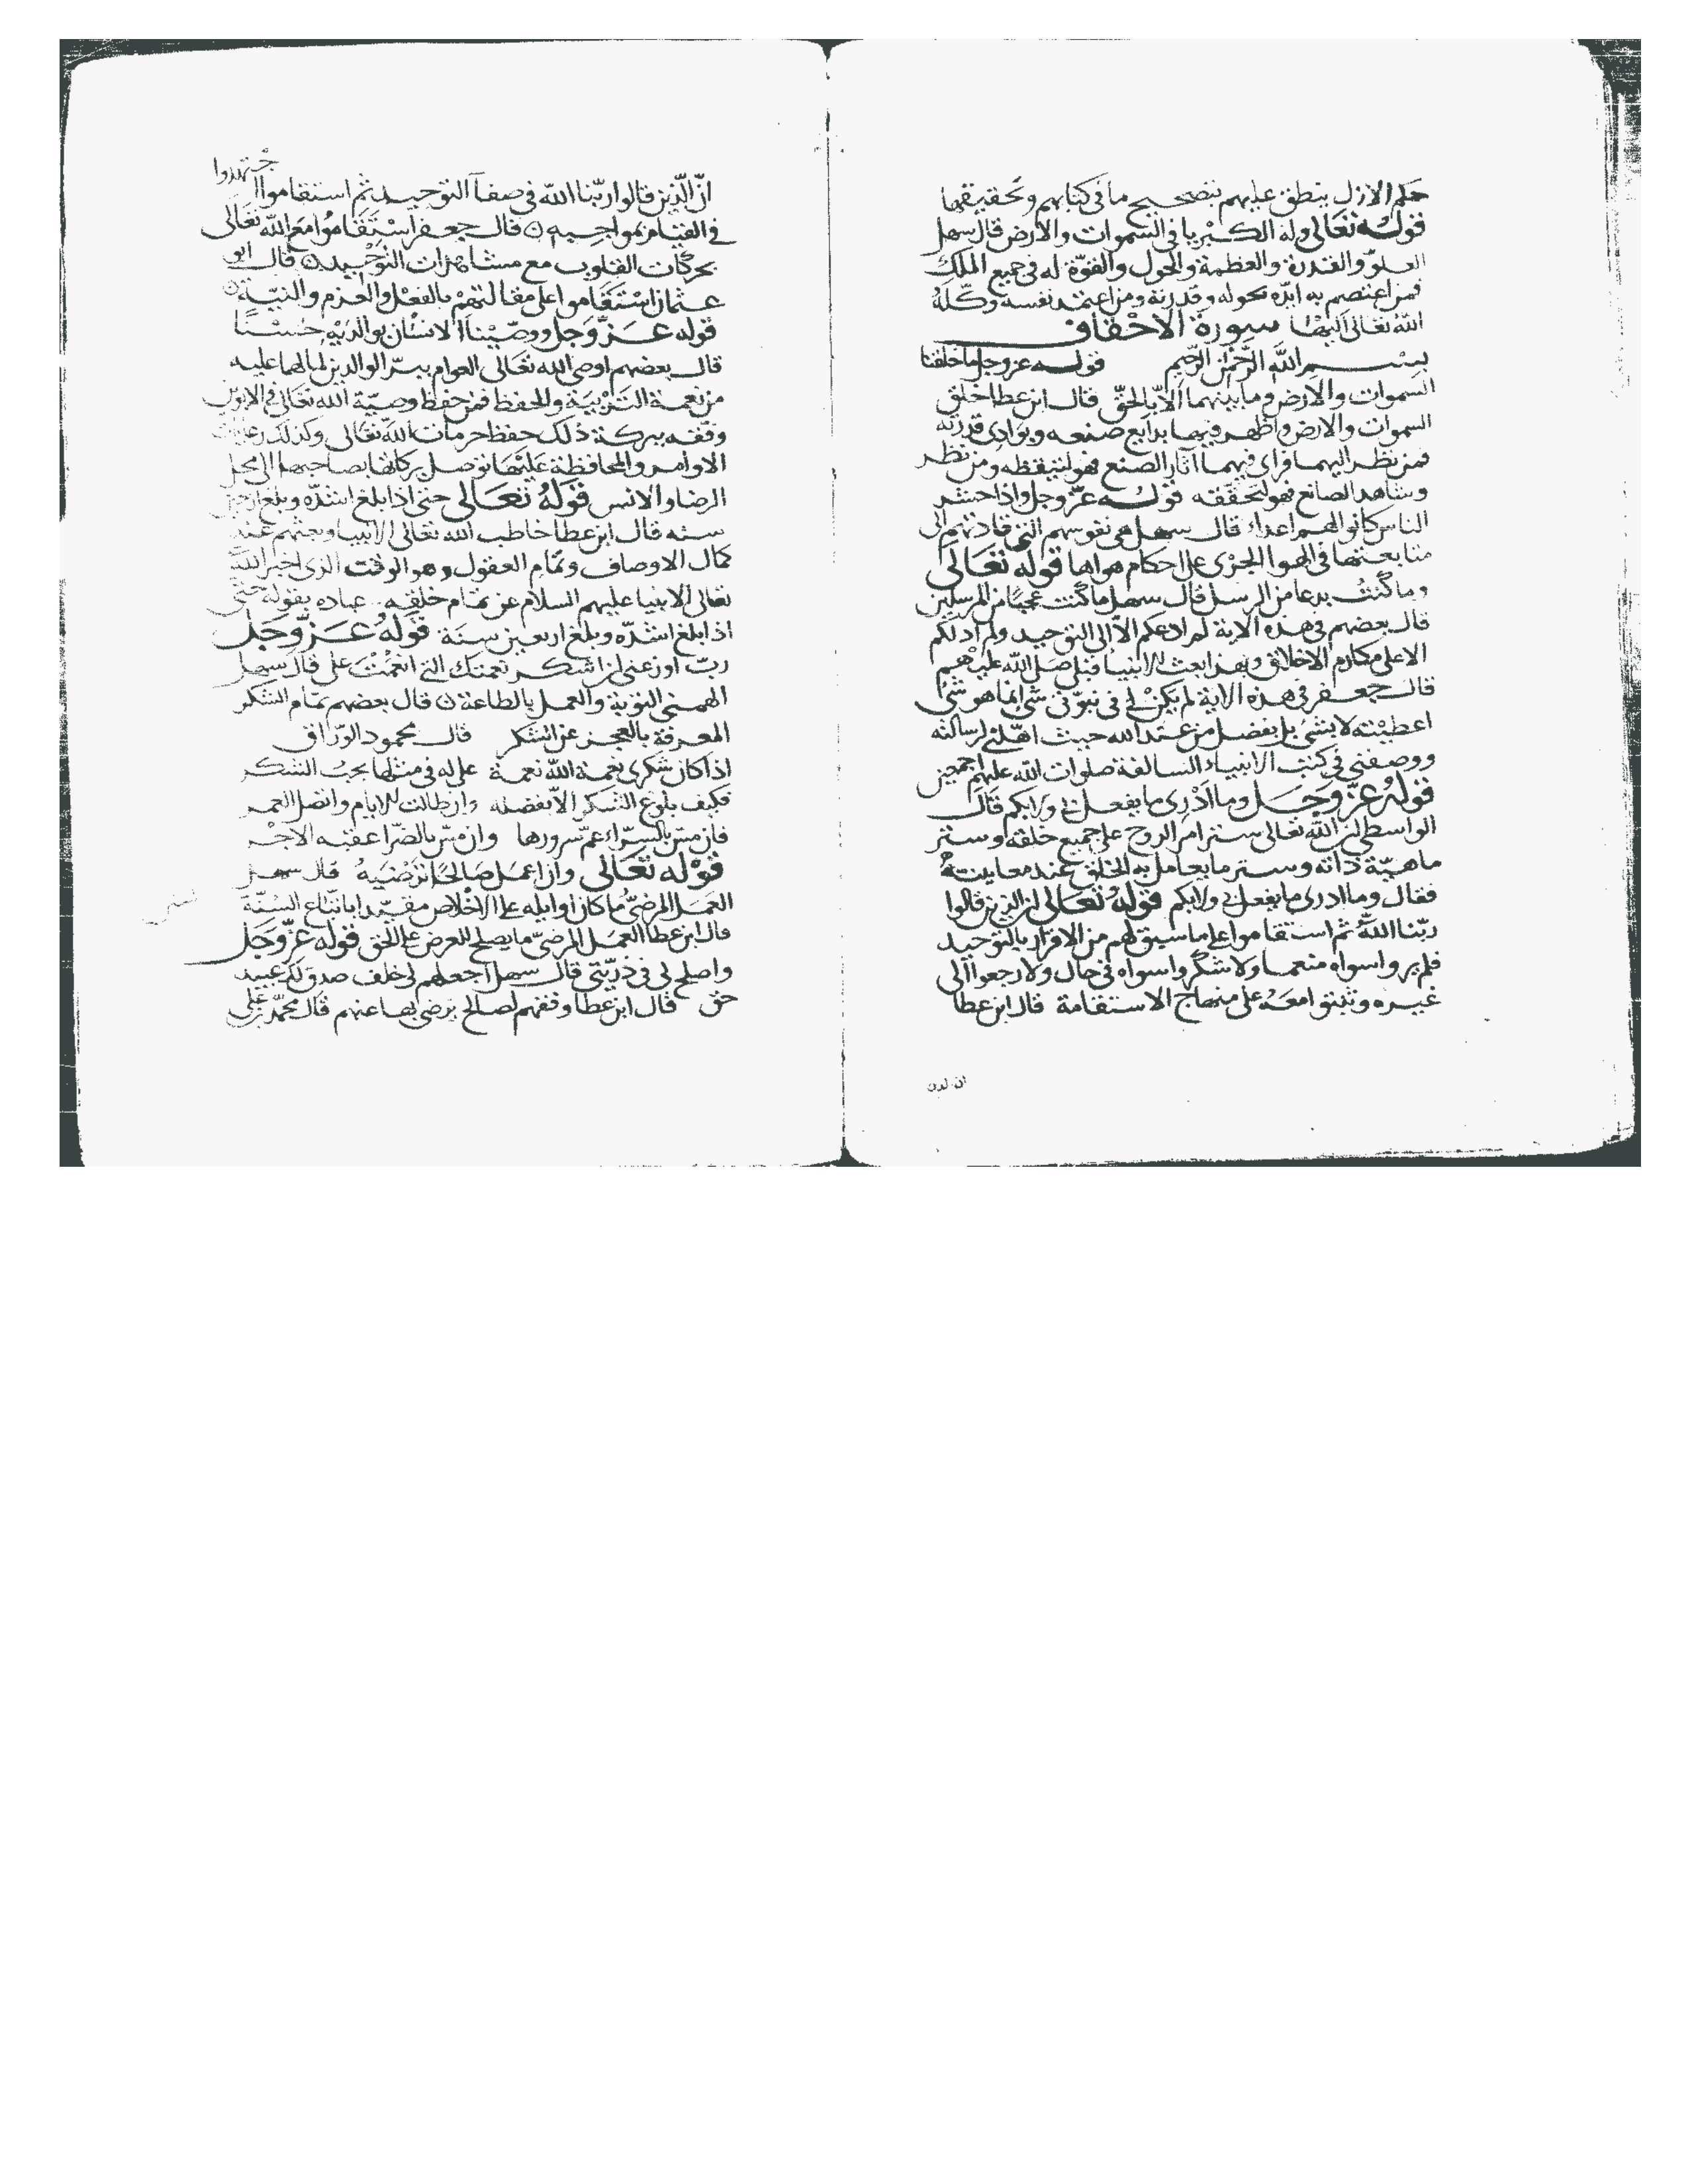 حكم الازل ينطق عليهم بتصحيح ما فى كتابهم وتحقيقها
قوله تعالى وله الكبريا فى السموات والارض قال سهل
العلوّ والقدرة والعظمة والحول والقوّة له فى جميع الملك
فمن اعتصم به ايّده بحوله وقدرته ومن اعتمد نفسه وكّله
الله تعالى اليها سورة الاحقاف
بسم الله الرحمن الرحيم قوله عز وجل ما خلقنا
السموات والارض وما بينهما الّا بالحقّ قال ابن عطا خلق
السموات والارض واظهر فيهما بدايع صنعه وبوادى قدرته
فمن نظر اليهما فراى فيهما آثار الصنع فهو لتيقظه ومن نظر
وشاهد الصانع فهو لتحققه قوله عزّ وجل واذا حشر
الناس كانوا لهم اعداء قال سهل هى نفوسهم التى قادتهم الى
متابعتها فى الهوا الجرى على احكام هواها قوله تعالى
وما كنت بدعا من الرسل قال سهل ما كنت عجبًا من المرسلين
قال بعضهم فى هذه الاية لم ادعكم الّا الى التوحيد ولم ادلكم
الا على مكارم الاخلاق وبهذا بعث الانبيا قبلى صلى الله عليهم
قال جعفر فى هذه الاية لم يكن لى فى نبوّتى شئ انما هو شئ
اعطيته لا بشئ بل بفضل من عند الله حيث اهّلنى لرسالته
ووصفنى فى كتب الانبياء السالفة صلوات الله عليهم اجمعين
قوله عزّ وجل وما ادرى ما يفعل بى ولا بكم قال
الواسطى لان الله تعالى ستر امر الروح على جميع خلقه وستر
ماهيّة ذاته وستر ما يعامل به الخلق عند معاينته
فقال وما ادرى ما يفعل بى ولا بكم قوله تعالى ان الذين قالوا
ربّنا الله ثم استقاموا على ما سبق لهم من الاقرار بالتوحيد
فلم يروا سواه منعما ولا شكروا سواه فى حال ولا رجعوا الى
غيره وثبتوا معه على منهاج الاستقامة قال ابن عطا
ان الذين
انّ الّذين قالوا ربّنا الله فى صفآ التوحيد ثم استقاموا اجتهدوا
فى القيام بمواجبه ن قال جعفر استقاموا مع الله تعالى
بحركات القلوب مع مشاهدات التوحيد ن قال ابو
عثمان استقاموا على مقالتهم بالفعل والعزم والنيّة ن
قوله عزّ وجل ووصّينا الانسان بوالديه حسنًا
قال بعضهم اوصى الله تعالى العوام ببرّ الوالدين لما لهما عليه
من نعمة التربية والحفظ فمن حفظ وصيّة الله تعالى فى الابوين
وفّقه ببركة ذلك حفظ حرمات الله تعالى وكذلك رعاية
الاوامر والمحافظة عليها توصل بركاتها بصاحبها الى محل
الرضا والانس قوله تعالى حتى اذا بلغ اشدّه وبلغ اربعين
سنه قال ابن عطا خاطب الله تعالى الانبيا وبعثهم عند
كمال الاوصاف وتمام العقول وهو الوقت الذى اخبر الله
تعالى الانبيا عليهم السلام عن تمام خلقه عباده بقوله حتى
اذا بلغ اشدّه وبلغ اربعين سنة قوله عزّ وجل
ربّ اوزعنى ان اشكر نعمتك التى انعمت على قال سهل
الهمنى التوبة والعمل بالطاعة ن قال بعضهم تمام الشكر
المعرفة بالعجز عن الشكر قال محمود الورّاق
اذا كان شكرى نعمة الله نعمة على له فى مثلها يجب الشكر
فكيف بلوغ الشكر الّا بفضله وان طالت الايام واتصل العمر
فان مسّ بالسرّاء عمّ سرورها وان مسّ بالضرّا عقبه الاجر
قوله تعالى وان اعمل صالحًا ترضيه قال سهل
العمل المرضىّ ما كان اوايله على الاخلاص مقيّدا باتباع السنّة
قال ابن عطا العمل المرضىّ ما يصلح للعرض على الحق قوله عزّ وجل
واصلح لى فى ذرّيتى قال سهل اجعلهم لى خلف صدق لك عبيد
حق قال ابن عطا وفقهم لصالح يرضى بها عنهم قال محمّد بن على